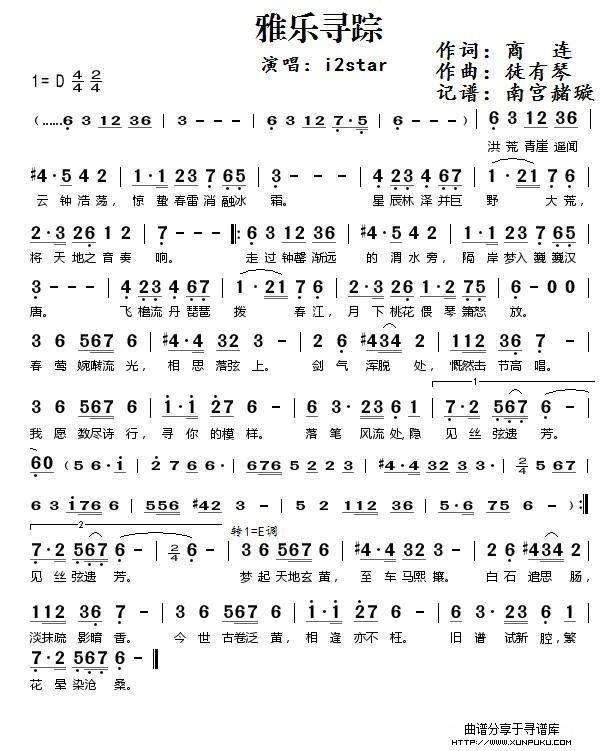 雅乐寻踪
演唱：i2star
作词：商 连
作曲：徒有琴
记谱：南宫赭璇
1=D 4/4 2/4
(……6 3 12 36 | 3 - - - | 6 3 12 7·5 | 6 - - -) | 6 3 12 36
洪荒 青崖 遥闻
#4·5 4 2 | 1·1 23 7 65 | 3 - - - | 4 23 4 67 | 1·21 7 6
云 钟浩荡，惊 蛰春雷消融冰 霜。 星 辰林泽并巨 野 大荒，
2·3 26 1 2 | 7 - - - |: 6 3 12 36 | #4·5 4 2 | 1·1 23 7 65
将 天地之音奏 响。 走过钟罄渐远 的 渭水旁，隔 岸梦入巍巍汉
3 - - - | 4 23 4 67 | 1·21 7 6 | 2·3 26 1·2 75 | 6 - 0 0
唐。 飞檐流丹琵琶 拨 春江，月 下桃花偎 琴箫怒 放。
3 6 567 6 | #4·4 32 3 - | 6 2 #434 2 | 112 36 7 -
春莺婉啭流光，相 思落弦上。 剑气浑脱 处，慨然击节高唱。
1
3 6 567 6 | i·i 27 6 - | 6 3 23 6 1 | 7·2 567 6 -
我愿数尽诗行，寻 你的模样。 落笔风流处，隐 见 丝弦遗 芳。
60 (5 6·i | 2 766 6· | 676 5 2 23 | #4·4 32 3 - | 2/4 5 56
6 3 i76 6 | 556 #42 3 - | 5 2 112 36 | 5·6 75 6 -) :|
2
7·2 567 6 - | 2/4 6 - | 3 6 567 6 | #4·4 32 3 - | 6 2 #434 2
转1=E调
见 丝弦遗 芳。 梦起天地玄黄，至 车马熙攘。 白石遐思 肠，
112 36 7 - | 3 6 567 6 | i·i 27 6 - | 6 3 23 6 1
淡抹疏影暗 香。 今世古卷泛黄，相 逢亦不枉。 旧谱试新腔，繁
7·2 567 6 - ‖
花 晕染沧 桑。
曲谱分享于寻谱库
HTTP://WWW.XUNPUKU.COM